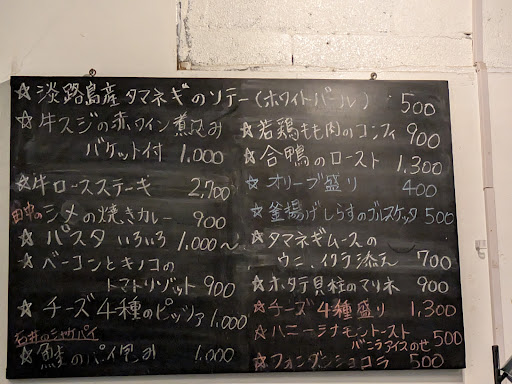 ☆淡路島産タマネギのソテー(ホワイトバール) 500
☆牛スジの赤ワイン煮込み
バケット付 1,000
☆牛ロースステーキ 2,700
田中のシメの焼きカレー 900
☆パスタいろいろ 1,000~
☆ベーコンとキノコの
トマトリゾット 900
☆チーズ4種のピッツァ 1,000
石井のシャケパイ
☆鮭のパイ包み 1,000
☆若鶏もも肉のコンフィ 900
☆合鴨のロースト 1,300
☆オリーブ盛り 400
☆釜揚げしらすのブルスケッタ 500
☆タマネギムースの
ウニ、イクラ添え 700
☆ホタテ貝柱のマリネ 900
☆チーズ4種盛り 1,300
☆ハニーシナモントースト
バニラアイスのせ 500
☆フォンダンショコラ 500